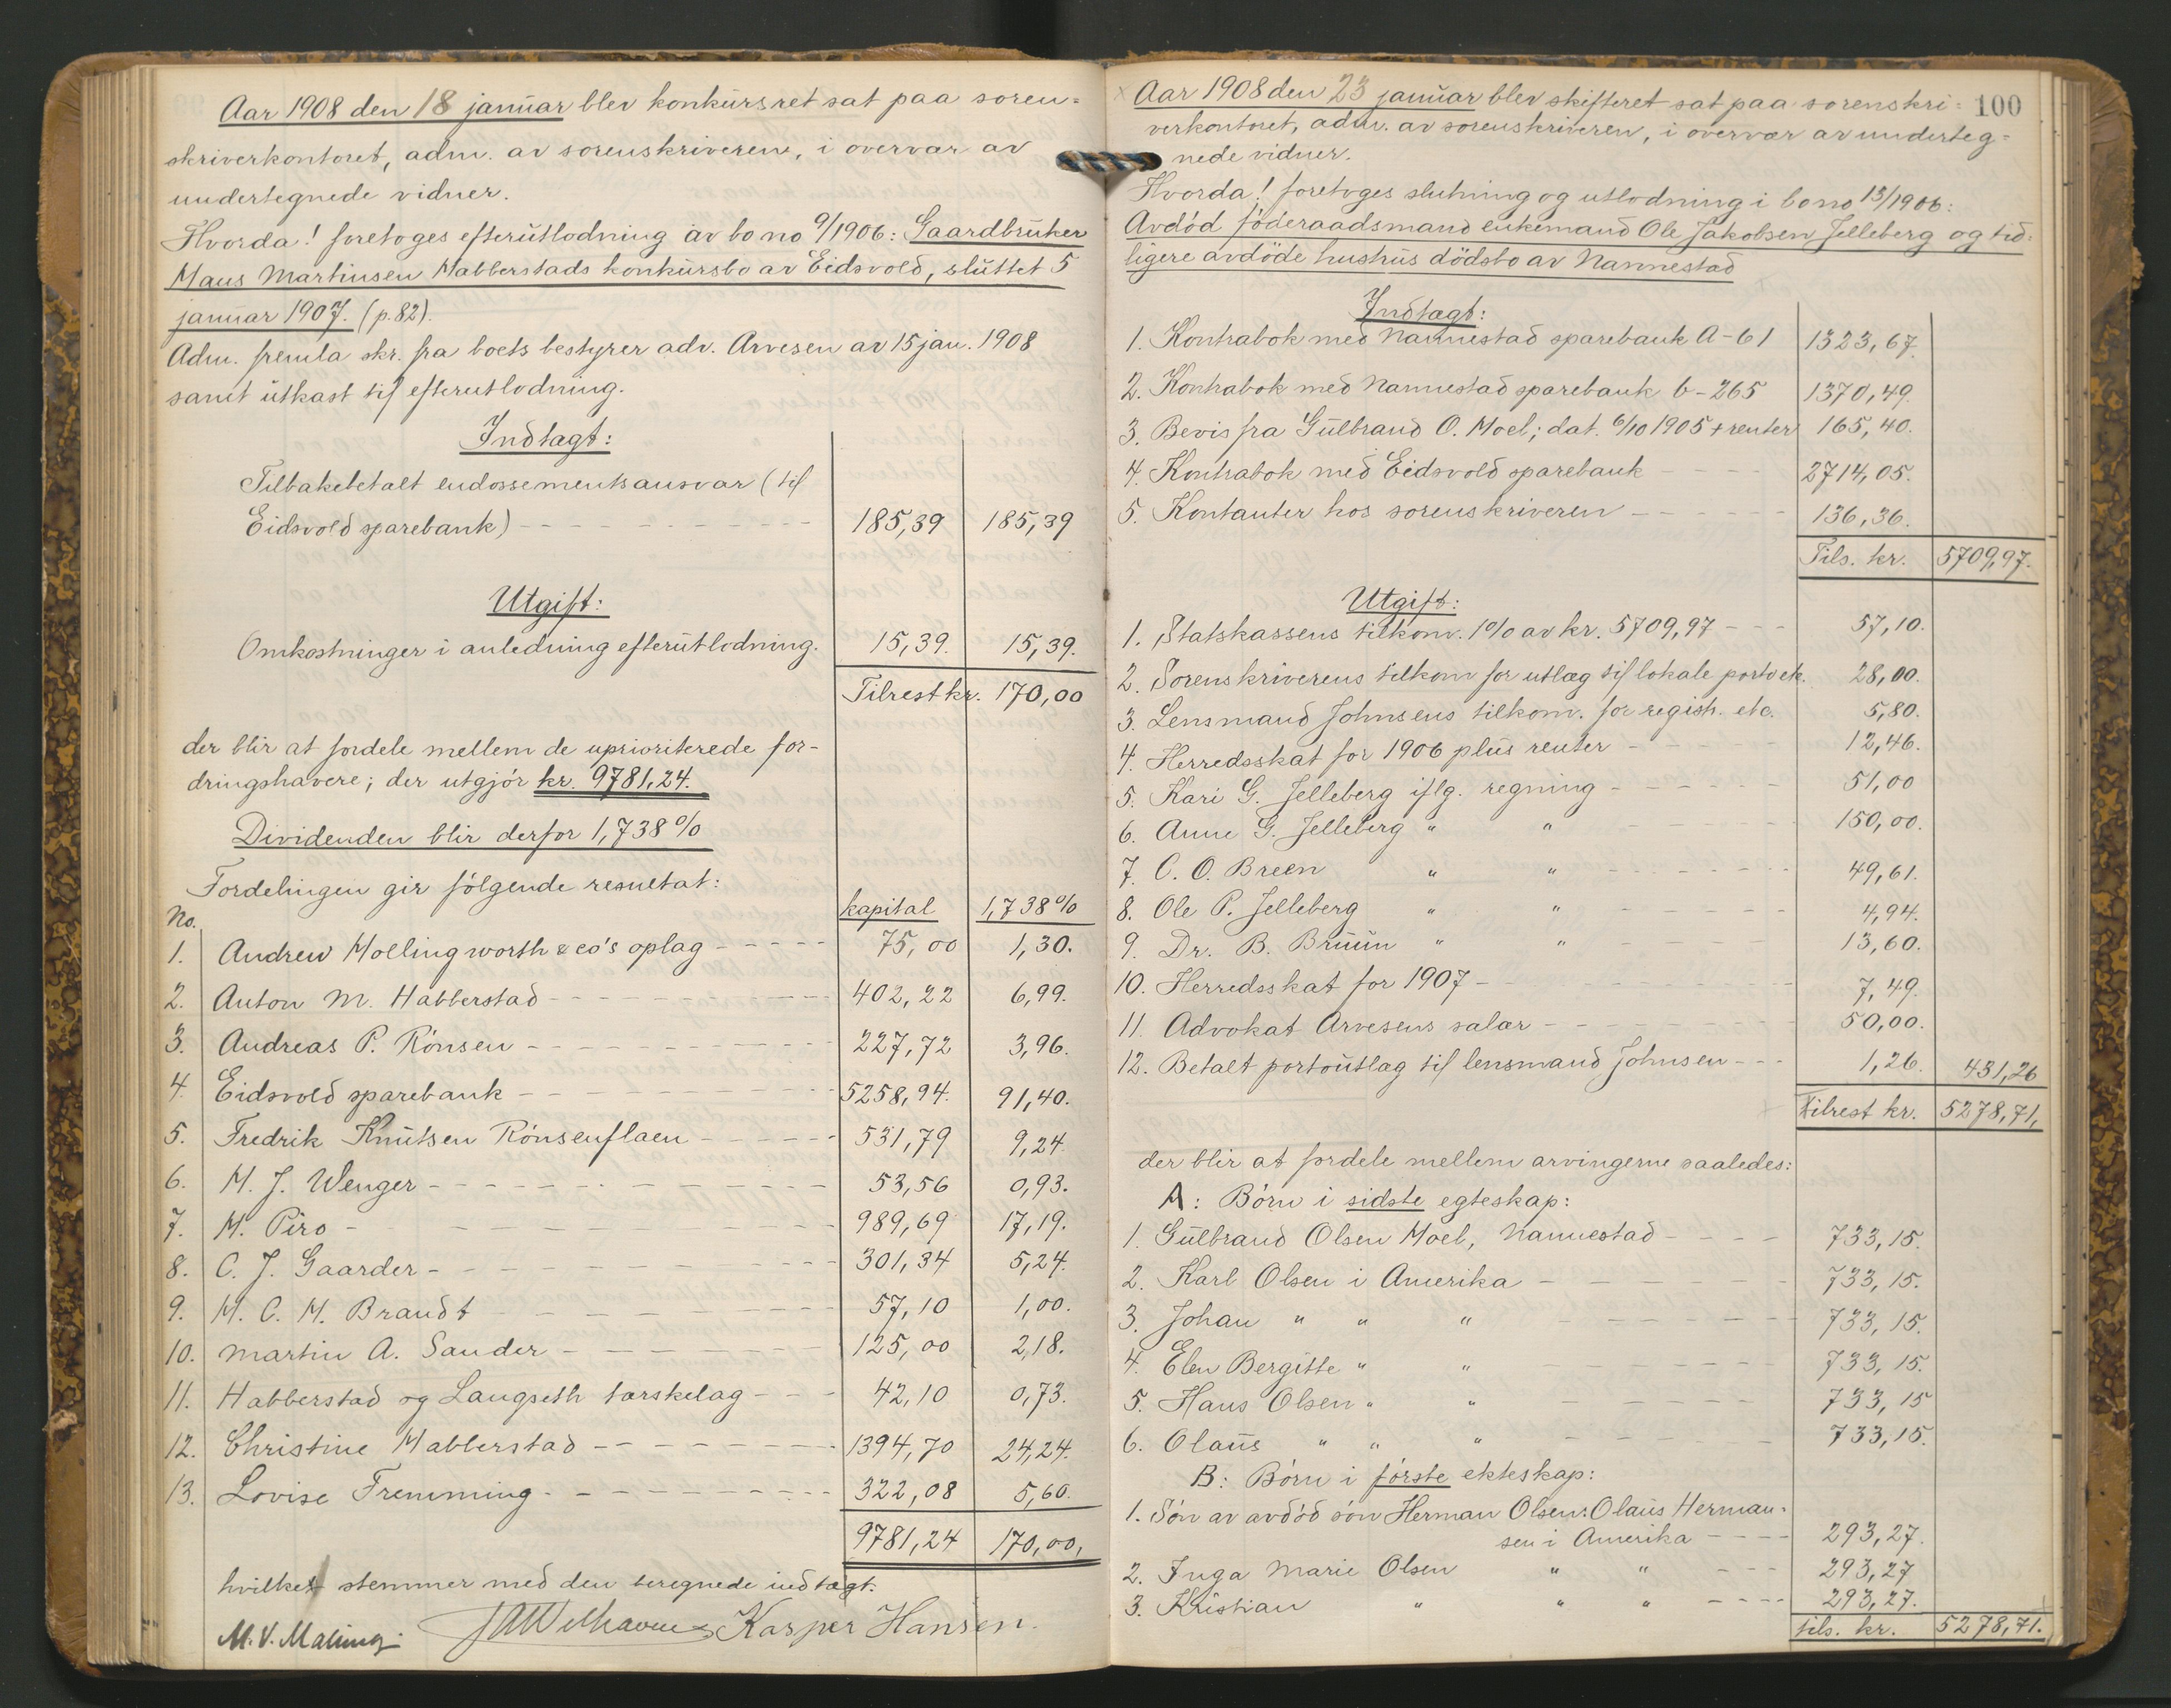 Aar 1908 den 18 januar blev konkursret sat paa soren=
skriverkontoret, adm. av sorenskriveren, i overvær av
undertegnede vidner.
Hvorda! foretoges efterutlodning av bo no 9/1906: Gaardbruker
Hans Martinsen Habberstads konkursbo av Eidsvold, sluttet 5
januar 1907. (p. 82).
Adm. fremla skr. fra boets bestyrer adv. Arvesen av 15 jan. 1908
samt utkast til efterutlodning.
Indtægt:
Tilbakebetalt endossementsansvar (til
Eidsvold sparebank) 185,39 185,39
Utgift:
Omkostninger i anledning efterutlodning. 15,39. 15,39.
Tilrest kr. 170,00
der blir at fordele mellem de uprioriterede for-
dringshavere; der utgjör kr. 9781,24.
Dividenden blir derfor 1,738 %
Fordelingen gir fölgende resultat:
No. kapital 1,738 %
1. Andrew Hollingworth & co's oplag 75,00 1,30.
2. Anton M. Habberstad 402,22 6,99.
3. Andreas P. Rönsen 227,72 3,96.
4. Eidsvold sparebank 5258,94. 91,40.
5. Fredrik Knutsen Rönsenflaen 531,79 9,24.
6. H. J. Wenger 53,56 0,93.
7. H. Piro 989,69 17,19.
8. C. J. Gaarder 301,34 5,24.
9. H. C. H. Brandt 57,10 1,00.
10. Martin A. Sander 125,00 2,18.
11. Habberstad og Langseth tærskelag 42,10 0,73.
12. Christine Habberstad 1394,70 24,24.
13. Lovise Fremming 322,08 5,60.
9781,24 170,00,
hvilket stemmer med den beregnede indtægt.
M. V. Malling. JAWelhaven Kasper Hansen.
Aar 1908 den 23 januar blev skifteret sat paa sorenskri= 100
verkontoret, adm. av sorenskriveren, i overvær av underteg=
nede vidner.
Hvorda! foretoges slutning og utlodning i bo no 13/1906:
Avdöd föderaadsmand enkemand Ole Jakobsen Jelleberg og tid=
ligere avdöde hustrus dödsbo av Nannestad
Indtægt:
1. Kontrabok med Nannestad sparebank A-61 1323,67.
2. Kontrabok med Nannestad sparebank b-265 1370,49.
3. Bevis fra Gulbrand O. Moel; dat. 6/10 1905 + renter 165,40.
4. Kontrabok med Eidsvold sparebank 2714,05.
5. Kontanter hos sorenskriveren 136,36.
Tils. kr. 5709,97.
Utgift:
1. Statskassens tilkom. 1% av kr. 5709,97 57,10.
2. Sorenskriverens tilkom for utlæg til lokale porto etc. 28,00.
3. Lensmand Johnsens tilkom. for registr. etc. 5,80.
4. Herredsskat for 1906 plus renter 12,46.
5. Kari G. Jelleberg iflg. regning 51,00
6. Anne G. Jelleberg " " 150,00.
7. C. O. Breen " " 49,61.
8. Ole P. Jelleberg " " 4,94.
9. Dr. B. Bruun " " 13,60.
10. Herredsskat for 1907 7,49.
11. Advokat Arvesens salær 50,00.
12. Betalt portoutlæg til lensmand Johnsen 1,26. 431,26
Tilrest kr. 5278,71,
der blir at fordele mellem arvingerne saaledes:
A: Börn i sidste egteskap:
1. Gulbrand Olsen Moel, Nannestad 733,15.
2. Karl Olsen i Amerika 733,15.
3. Johan " " " 733,15.
4. Elen Bergitte " " 733,15.
5. Hans Olsen " " 733,15
6. Olaus " " " 733,15.
B: Börn i förste ekteskap:
1. Sön av avdöd sön Herman Olsen: Olaus Herman=
sen i Amerika 293,27.
2. Inga Marie Olsen " " 293,27
3. Kristian " " " 293,27.
tils. kr. 5278,71.